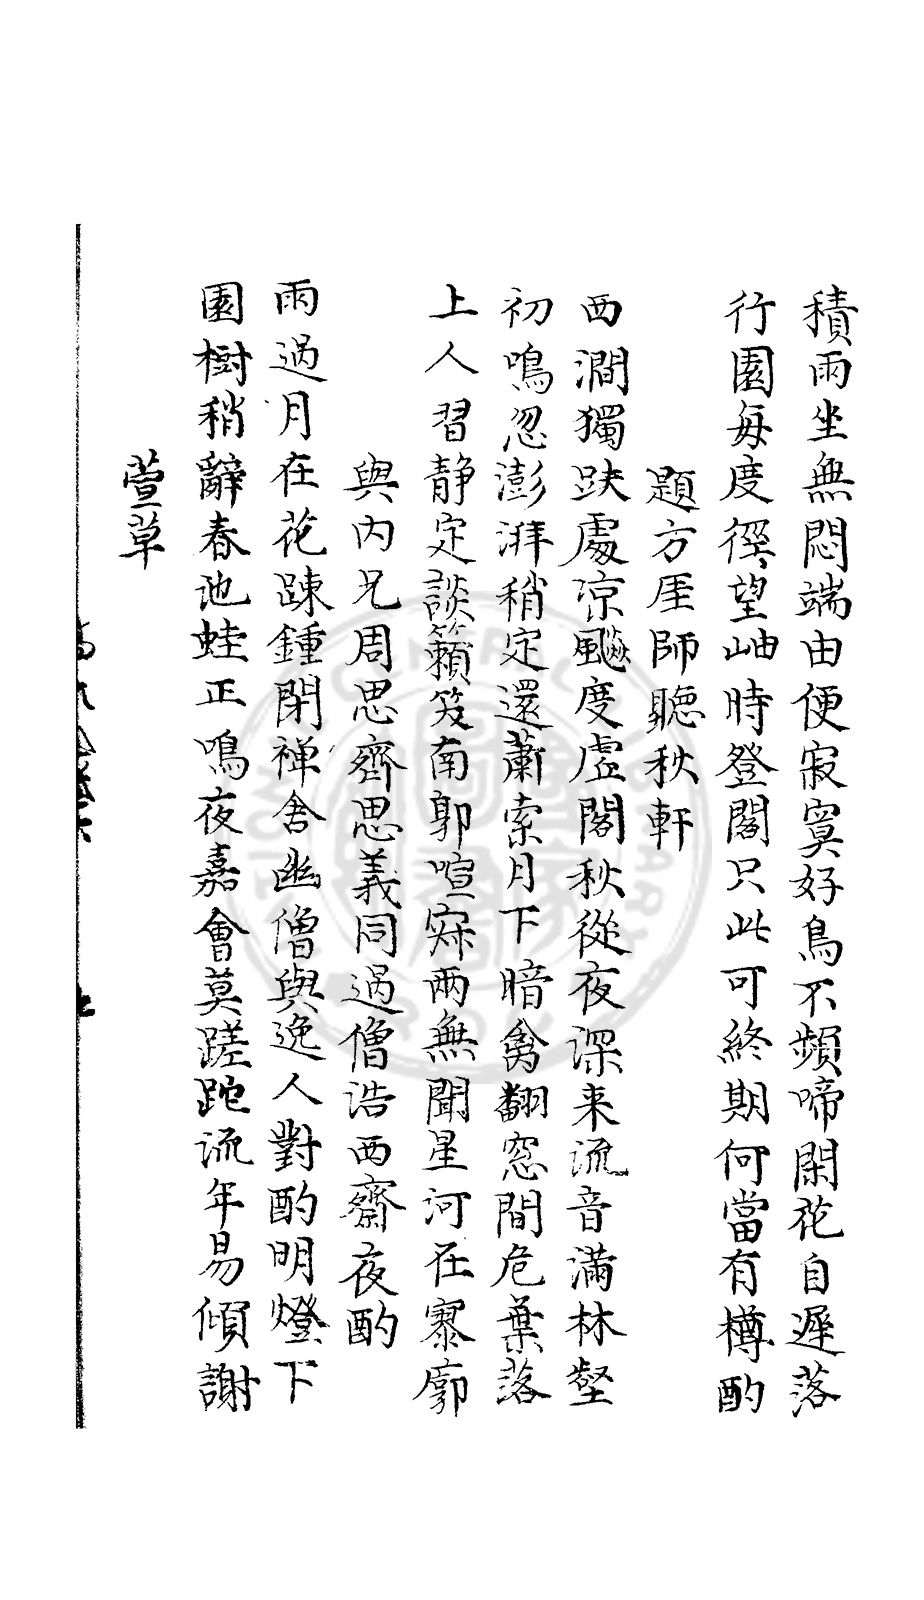 積雨坐無悶端由便寂寞好鳥不頻啼閑花自遲落
行園每度徑望岫時登閣只此可終期何當有樽酌
題方厓師聽秋軒
西澗獨趺處凉飈度虛閣秋從夜深来流音滿林壑
初鳴忽澎湃稍定還蕭索月下暗禽翻窓間危葉落
上人習静定談籟笑南郭喧寂兩無聞星河在寥廓
與内兄周思齊思義同過僧浩西齋夜酌
雨過月在花踈鍾閉禅舍幽僧與逸人對酌明燈下
園樹稍辭春池蛙正鳴夜嘉會莫蹉跎流年易傾謝
萱草